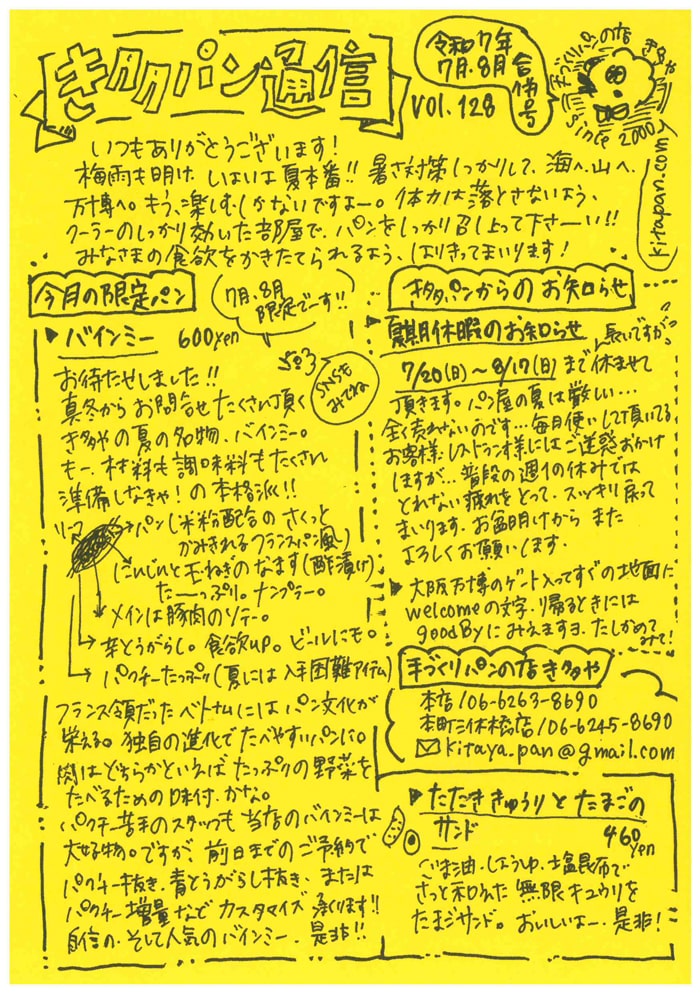 き多多パン通信
令和7年
7月.8月
合併号
VOL.128
手づくりパンの店
きタタや
since 2000
kitapan.com
いつもありがとうございます!
梅雨も明け、いよいよ夏本番!! 暑さ対策しっかりして、海へ.山へ.
万博へ。もう、楽しむしかないですよー。体力は落とさないよう、
クーラーのしっかり効いた部屋で、パンをしっかり召し上って下さーい!!
みなさまの食欲をかきたてられるよう、はりきってまいります!
今月の限定パン
7月、8月
限定でーす!!
▶バインミー 600yen
SNSも
みてね
お待たせしました!!
真冬からお問合せたくさん頂く
き多やの夏の名物、バインミー。
もー、材料も調味料もたくさん
準備しなきゃ!の本格派!!
パン(米粉配合のさくっと
かみきれるフランスパン風)
にんじんと玉ねぎのなます(酢漬け)
たーっぷり。ナンプラー。
メインは豚肉のソテー。
辛とうがらし。食欲up。ビールにも。
パクチーたっぷり(夏には入手困難アイテム)
フランス領だったベトナムにはパン文化が
栄える。独自の進化でたべやすいパンに。
肉はどちらかといえばたっぷりの野菜を
たべるための味付.かな。
パクチー苦手のスタッフも当店のバインミーは
大好物。ですが、前日までのご予約で
パクチー抜き、青とうがらし抜き、または
パクチー増量などカスタマイズ承ります!!
自信の、そして人気のバインミー、是非!!
き多パンからのお知らせ
▶夏期休暇のお知らせ
長いですが
7/20(日)〜8/17(日)まで休ませて
頂きます。パン屋の夏は厳しい…
全く売れないのです…毎月使いして頂いてる、
お客様、レストラン様にはご迷惑おかけ
しますが…普段の週1の休みでは
とれない疲れをとって、スッキリ戻って
まいります。お盆明けからまた
よろしくお願いします。
▶大阪万博のゲート入ってすぐの地面に
welcomeの文字、帰るときには
goodByにみえますヨ.たしかめて
みて!
手づくりパンの店き多や
本店/06-6263-8690
本町三休橋店/06-6245-8690
kitaya.pan@gmail.com
▶たたききゅうりとたまごの
サンド 460yen
ごま油、しょうゆ、塩昆布で
さっと和えた無限キュウリを
たまごサンド。おいしいよー、是非!